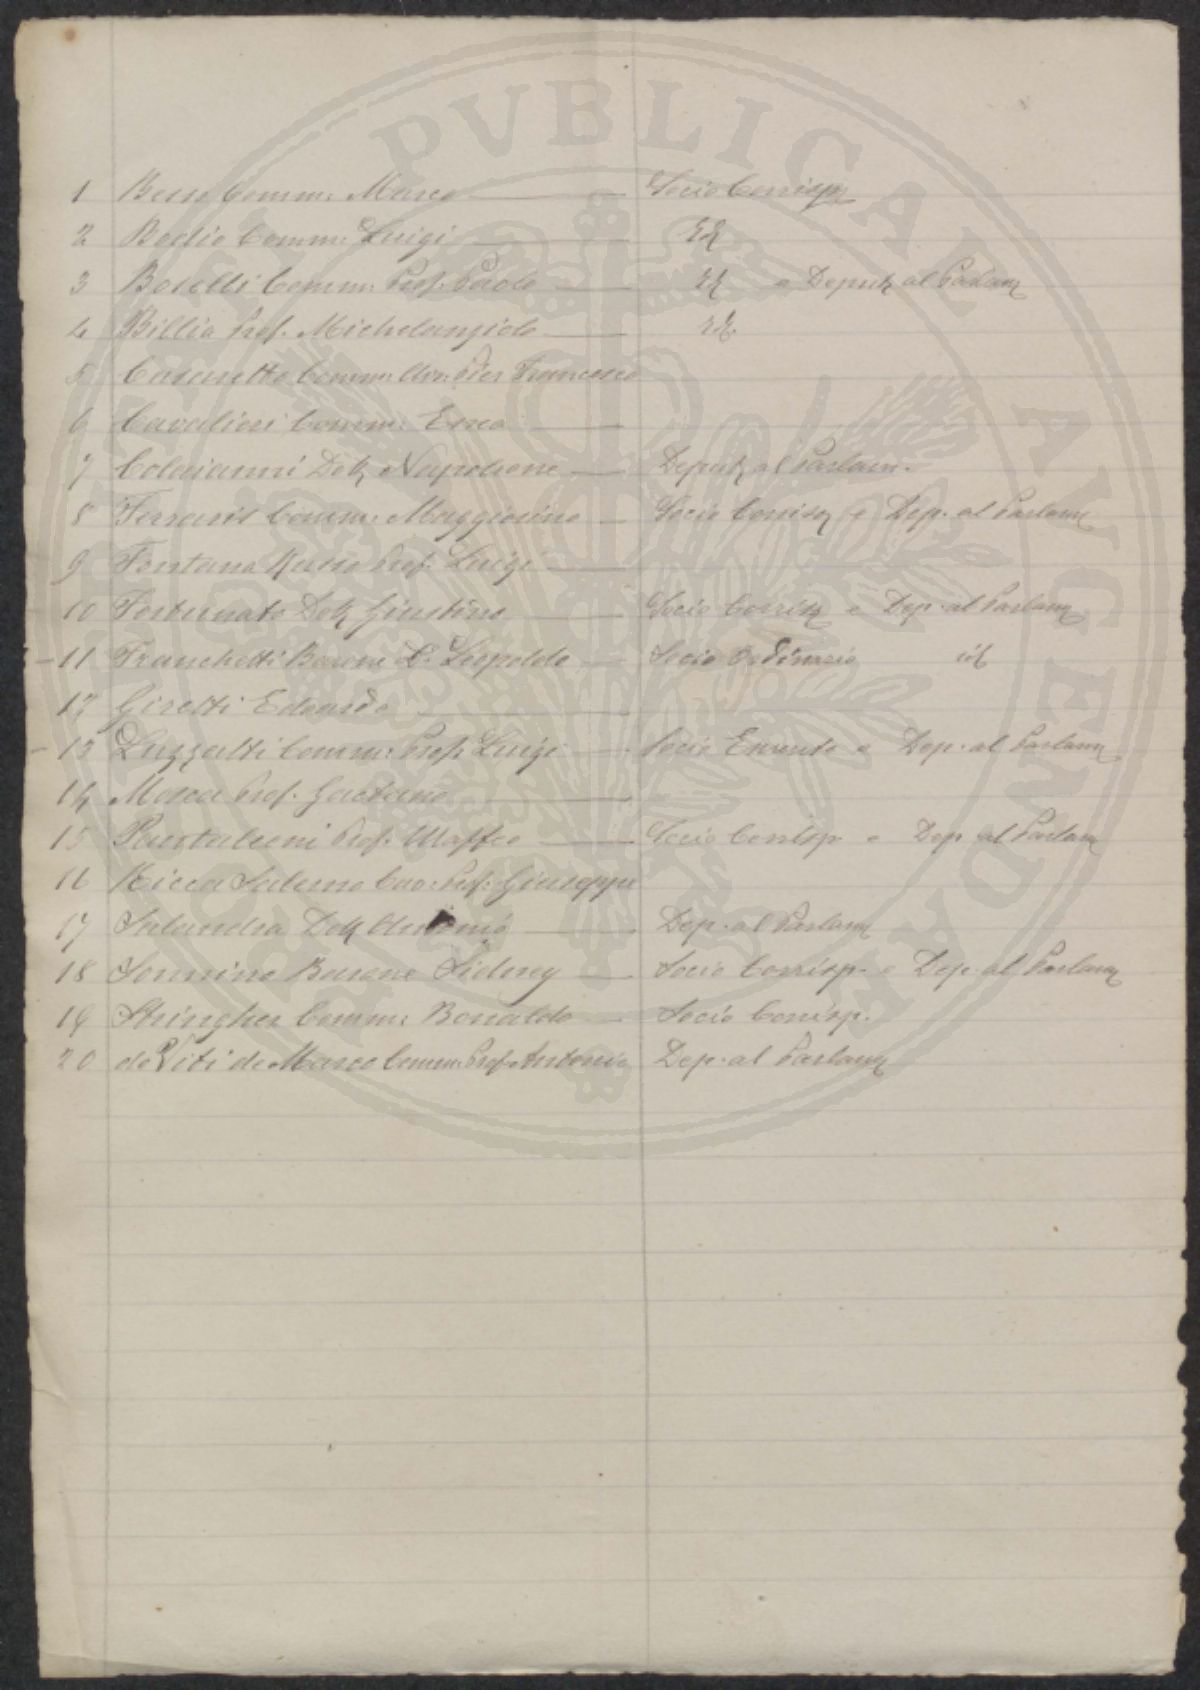 1 Besso Comm: Marco Socio Corrisp
2 Bodio Comm: Luigi id
3 Boselli Comm: Prof. Paolo id e Deput al Parlam
4 Billia Prof. Michelangiolo id.
5 Casaretto Comm: Avv: Pier Francesco
6 Cavalieri Comm: Enea
7 Colaianni Dott Napoleone Deput al Parlam.
8 Ferraris Comm: Maggiorino Socio Corrisp e Dep. al Parlam
9 Fontana Russo Prof. Luigi
10 Fortunato Dott Giustino Socio Corrisp e Dep. al Parlam
11 Franchetti Barone Leopoldo Socio Ordinario id
12 Giretti Edoardo
13 Luzzatti Comm: Prof. Luigi Socio Emerito e Dep. al Parlam
14 Mosca Prof. Gaetano
15 Pantaleoni Prof. Maffeo Socio Corrisp e Dep al Parlam
16 Ricca Salerno Cav: Prof: Giuseppe
17 Salandra Dott Antonio Dep. al Parlam
18 Sonnino Barone Sidney Socio Corrisp. e Dep. al Parlam
19 Stringher Comm: Bonaldo Socio Corrisp.
20 de Viti de Marco Comm: Prof. Antonio Dep. al Parlam